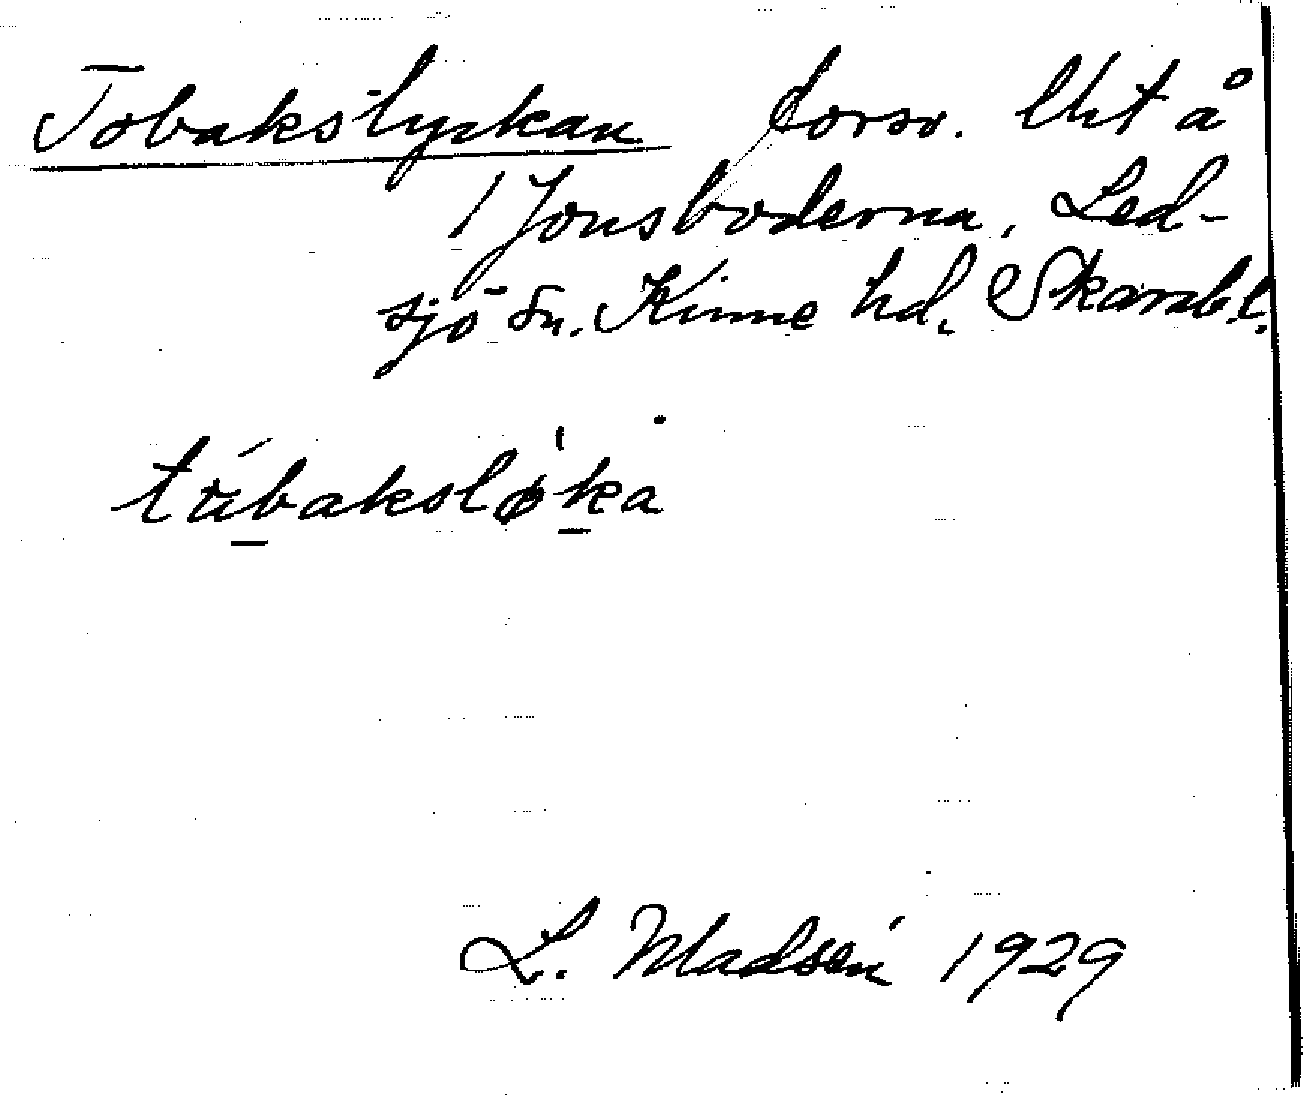 Tobakslyckan förso. lht å
1 Jonsboderna, Led-
sjö sn. Kinne hd. Skarab. l.
tùbakslø̀ka
L. Madsén 1929